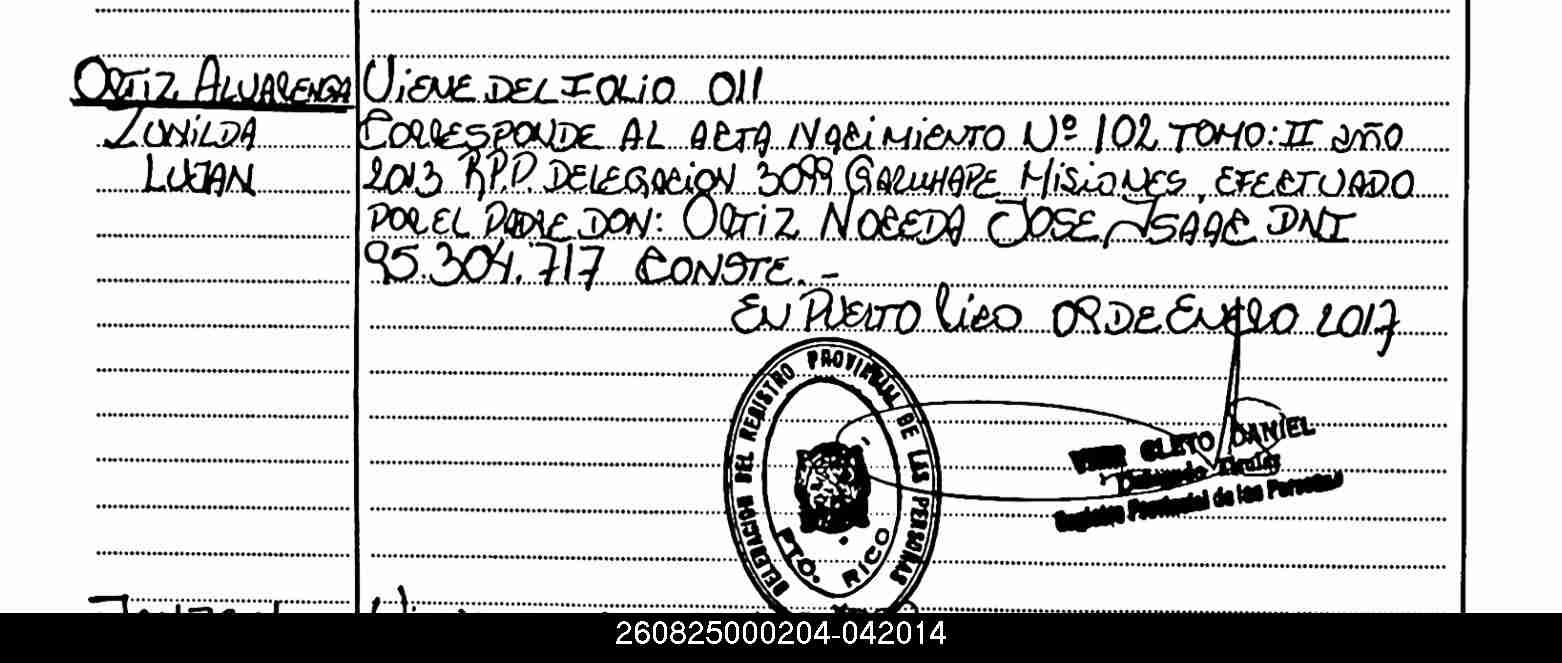 ORTIZ ALVARENGA
ZUNILDA
LUJAN
VIENE DEL FOLIO 011
CORRESPONDE AL ACTA NACIMIENTO Nº 102 TOMO: II AÑO
2013 R.P.P. DELEGACION 3099 GARUHAPE MISIONES, EFECTUADO
POR EL PADRE DON: ORTIZ NOCEDA JOSE ISAAC DNI
95.304.717 CONSTE.-
EN PUERTO RICO 09 DE ENERO 2017
DELEGACION DEL REGISTRO PROVINCIAL DE LAS PERSONAS
PTO. RICO
CLETO DANIEL
Delegado Titular
Registro Provincial de las Personas
260825000204-042014